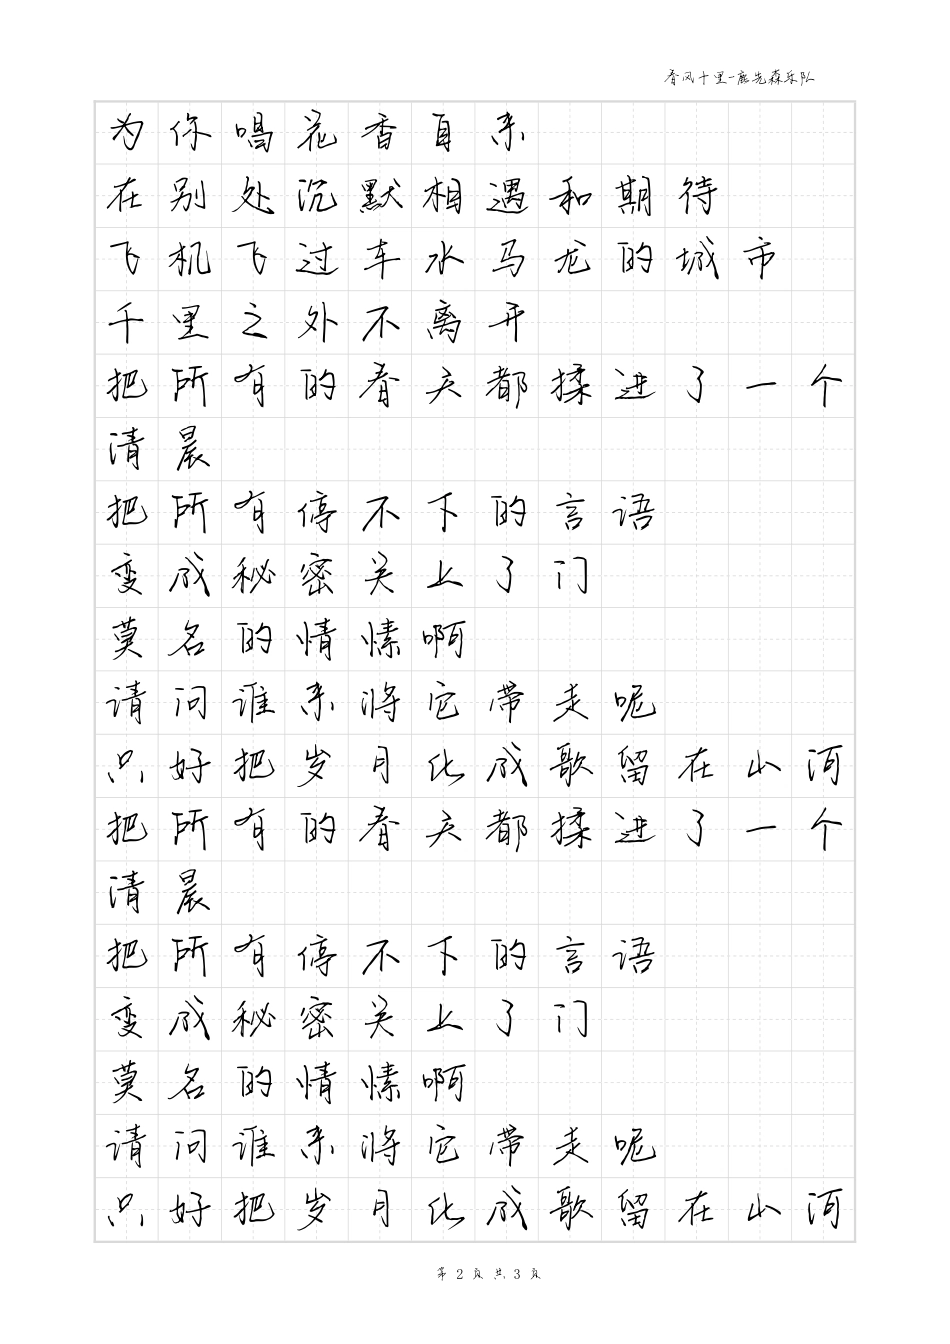 春风十里-鹿先森乐队
为你唱花香自来
在别处沉默相遇和期待
飞机飞过车水马龙的城市
千里之外不离开
把所有的春天都揉进了一个
清晨
把所有停不下的言语
变成秘密关上了门
莫名的情愫啊
请问谁来将它带走呢
只好把岁月化成歌留在山河
把所有的春天都揉进了一个
清晨
把所有停不下的言语
变成秘密关上了门
莫名的情愫啊
请问谁来将它带走呢
只好把岁月化成歌留在山河
第 2 页 共 3 页